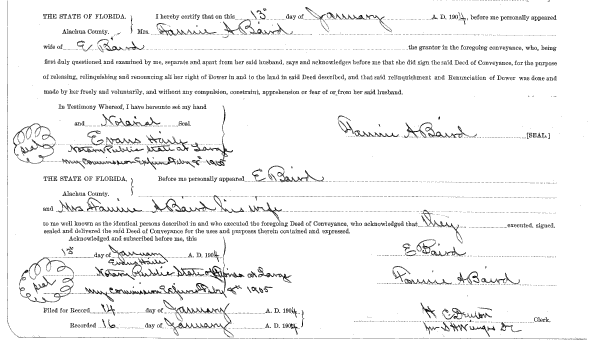 THE STATE OF FLORIDA. I hereby certify that on this 13th day of January A. D. 1904, before me personally appeared
Alachua County. Mrs. Fannie A Baird
wife of E Baird the grantor in the foregoing conveyance, who, being
first duly questioned and examined by me, separate and apart from her said husband, says and acknowledges before me that she did sign the said Deed of Conveyance, for the purpose
of releasing, relinquishing and renouncing all her right of Dower in and to the land in said Deed described, and that said relinquishment and Renunciation of Dower was done and
made by her freely and voluntarily, and without any compulsion, constraint, apprehension or fear of or from her said husband.
In Testimony Whereof, I have hereunto set my hand
and Notarial Seal
Evans Haile
Seal
Notary Public State at Large
My Commission Expires Feby 8th 1905
Fannie A Baird [SEAL]
THE STATE OF FLORIDA. Before me personally appeared E Baird
Alachua County.
and Mrs Fannie A Baird his wife
to me well known as the identical persons described in and who executed the foregoing Deed of Conveyance, who acknowledged that they executed, signed,
sealed and delivered the said Deed of Conveyance for the uses and purposes therein contained and expressed.
Acknowledged and subscribed before me, this
13th day of January A. D. 1904
E Baird
Evans Haile
Seal
Notary Public State of Florida at Large
Fannie A Baird
My Commission Expires Feby 8th 1905
Filed for Record 14 day of January A. D. 1904
H C Denton Clerk.
Recorded 16 day of January A. D. 1904